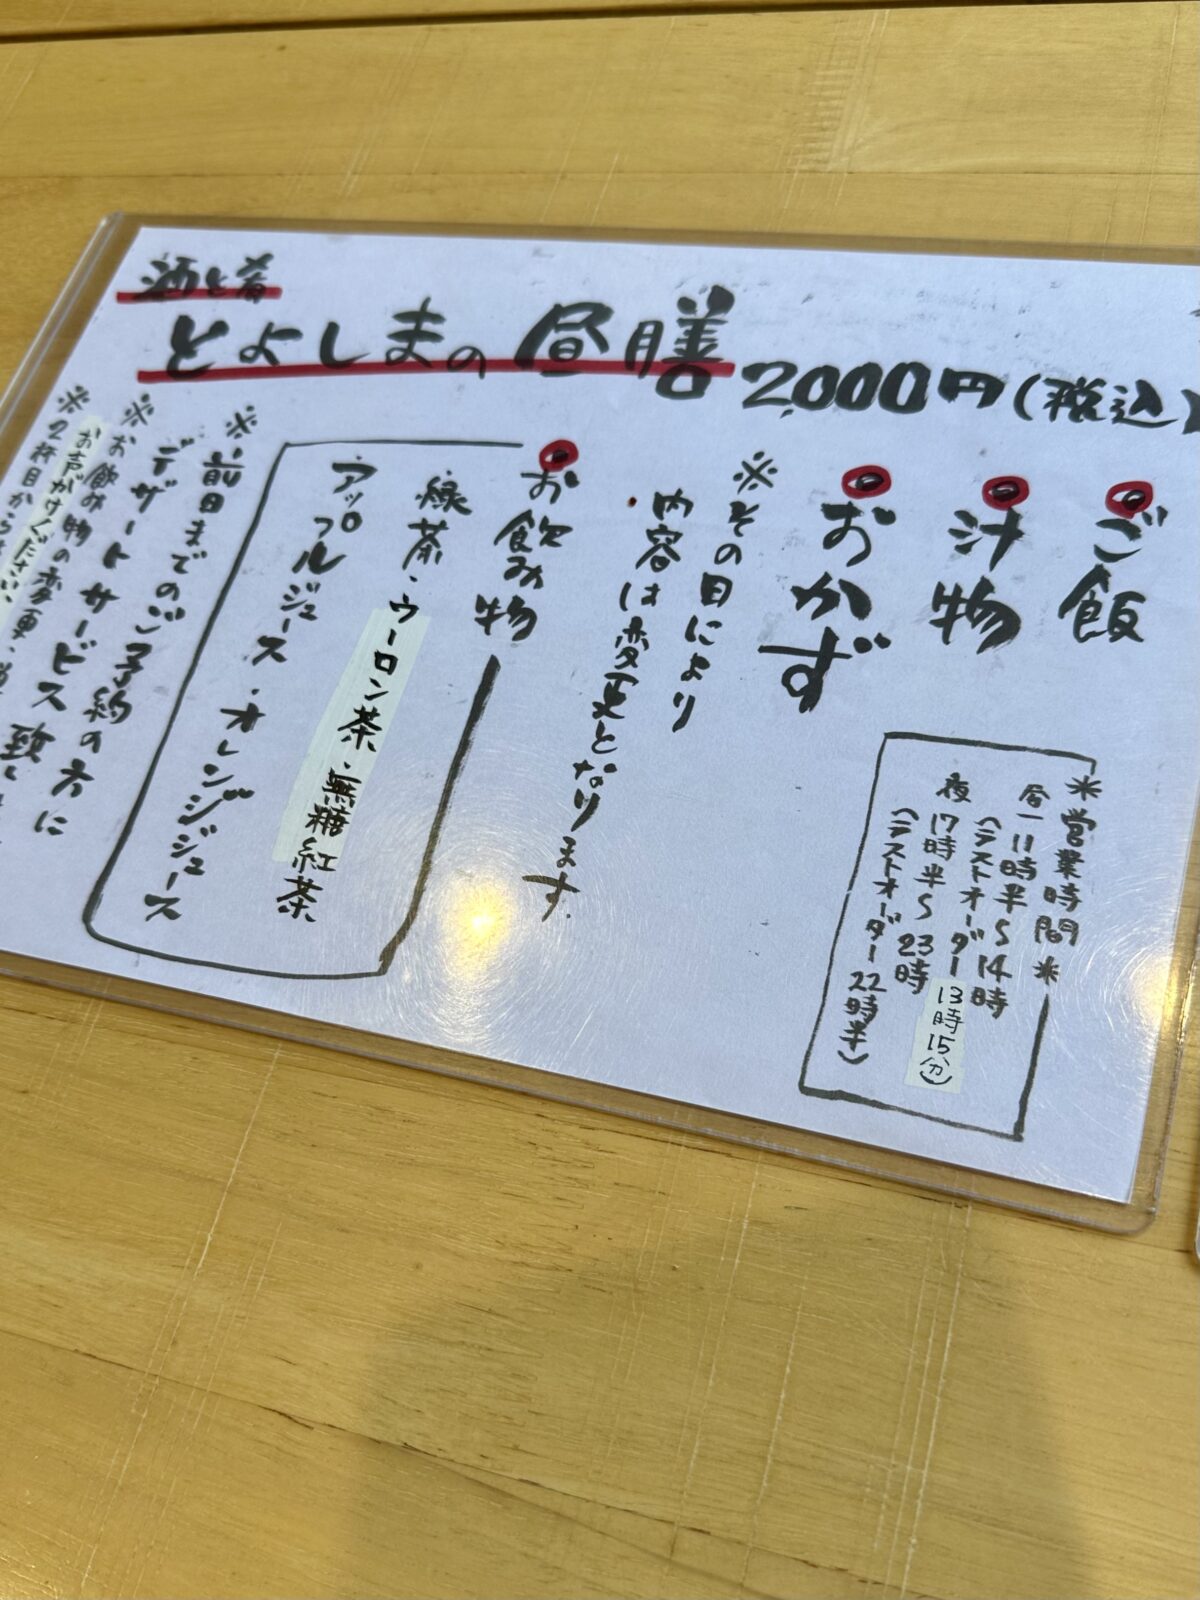 酒と肴
とよしまの昼膳 2,000円(税込)
ご飯
汁物
おかず
※その日により
内容は変更となります。
お飲み物
緑茶・ウーロン茶・無糖紅茶
・アップルジュース・オレンジジュース
※前日までのご予約の方に
デザートサービス致し
※お飲み物の変更・
お声がけください。
※2杯目から
*営業時間*
昼 11時半〜14時
(ラストオーダー13時15分)
夜 17時半〜23時
(ラストオーダー22時半)